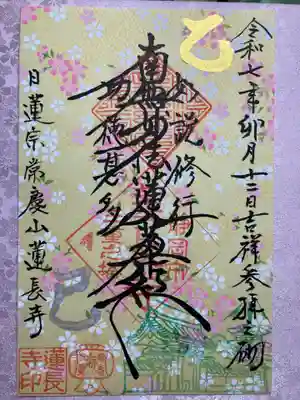 乙
令和七年卯月十二日吉祥参拝之砌
如説修行
南無妙法蓮華経
功徳甚多
巳
日蓮宗常慶山蓮長寺
蓮長寺印